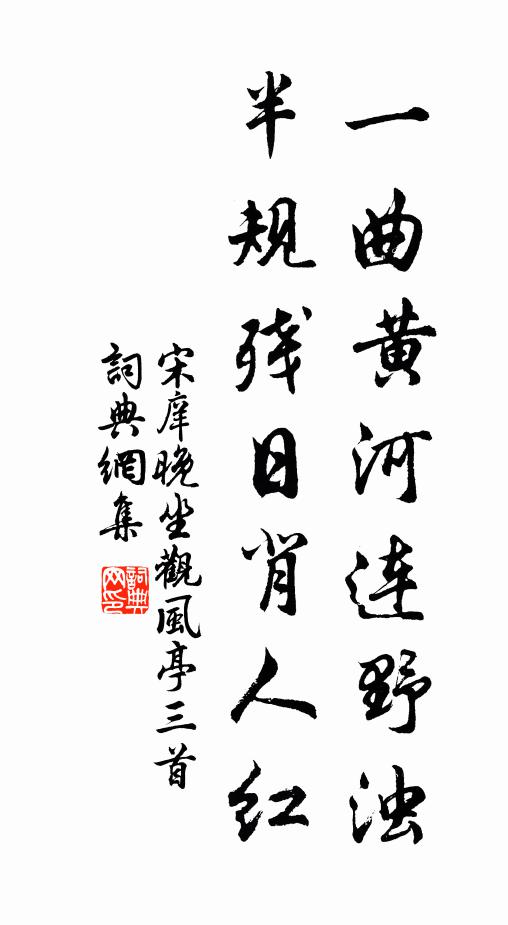 一曲黄河连野浊
半规残日背人红
宋庠晚坐觀風亭三首
詞典網集
詞典网印